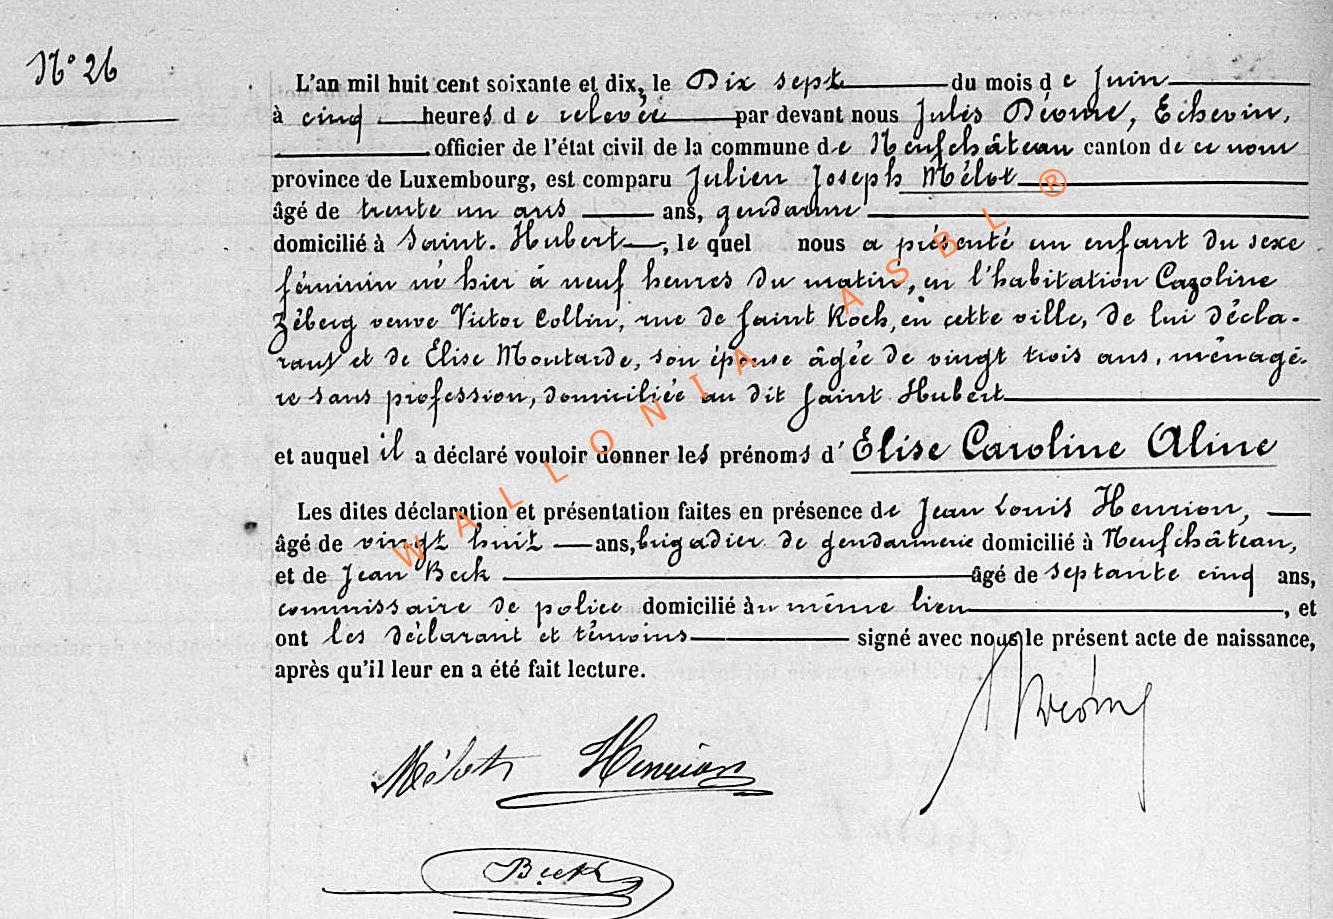 N° 26
L'an mil huit cent soixante et dix, le Dix sept du mois de Juin
à cinq heures de relevée par devant nous Jules Déome, Echevin,
officier de l'état civil de la commune de Neufchâteau canton de ce nom
province de Luxembourg, est comparu Julien Joseph Mélot
âgé de trente un ans ans, gendarme
domicilié à Saint-Hubert, le quel nous a présenté un enfant du sexe
féminin né hier à neuf heures du matin, en l'habitation Caroline
Zéberg veuve Victor Collin, rue de Saint Roch, en cette ville, de lui décla-
rant et de Elise Moutarde, son épouse âgée de vingt trois ans, ménagè-
re sans profession, domiciliée au dit Saint Hubert
et auquel il a déclaré vouloir donner les prénoms d'Elise Caroline Aline
Les dites déclaration et présentation faites en présence de Jean Louis Henrion,
âgé de vingt huit ans, brigadier de gendarmerie domicilié à Neufchâteau,
et de Jean Beck âgé de septante cinq ans,
commissaire de police domicilié au même lieu, et
ont les déclarant et témoins signé avec nous le présent acte de naissance,
après qu'il leur en a été fait lecture.
Mélot Henrion
Beck
WALLONIA ASBL ®